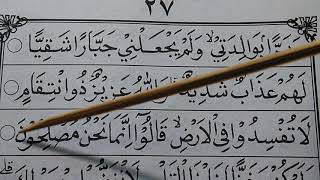 ٢٧
وَبَرًّا بِوَالِدَتِيْ وَلَمْ يَجْعَلْنِيْ جَبَّارًا شَقِيًّا
لَهُمْ عَذَابٌ شَدِيْدٌ وَاللهُ عَزِيْزٌ ذُوانْتِقَامٍ
لَا تُفْسِدُوا فِى الْاَرْضِ قَالُوْٓا اِنَّمَا نَحْنُ مُصْلِحُوْنَ